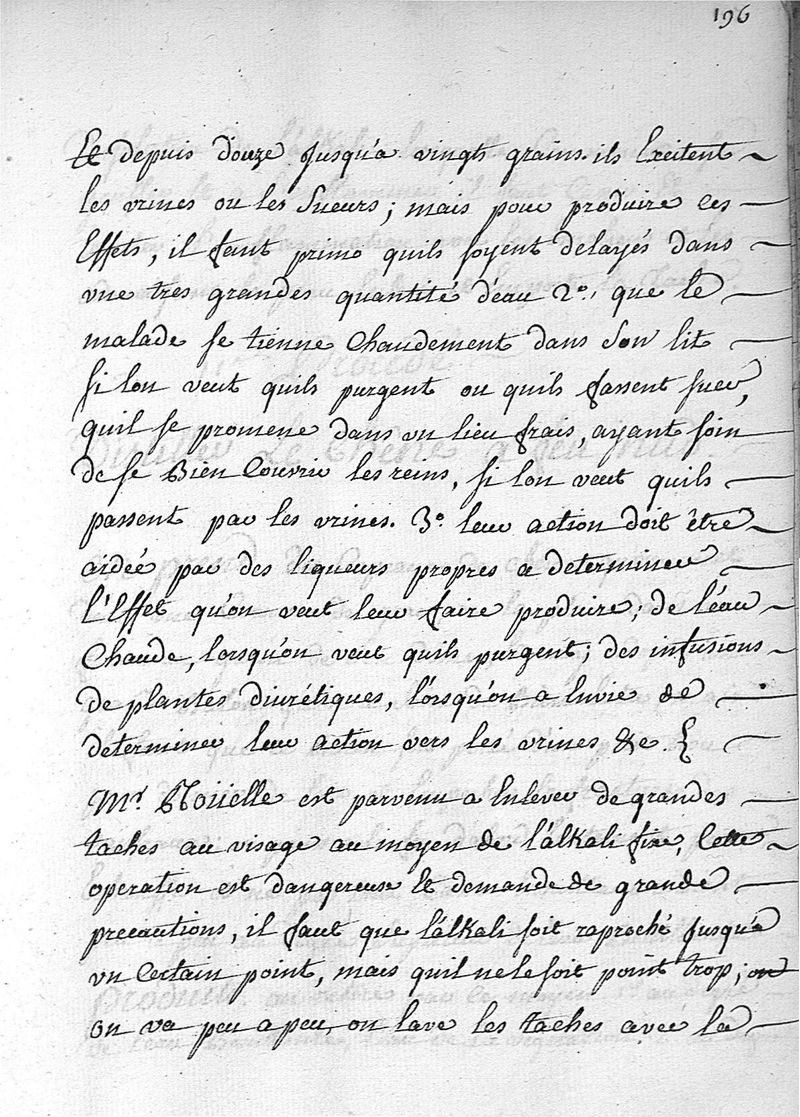 196
Et depuis douze jusqu'a vingts grains. ils Excitent
les vrines ou les sueurs; mais pour produire ces
Effets, il faut primo quils soyent delayés dans
vne tres grandes quantité d'eau 2°. que le
malade se tienne Chaudement dans son lit
si lon veut quils purgent ou quils fassent suer,
quil se promene dans vn lieu frais, ayant soin
de se Bien Couvrir les reins, si lon veut quils
passent par les vrines. 3°. leur action doit être
aidée par des liqueurs propres a determiner
l'Effet qu'on veut leur faire produire; de l'eau
Chaude, lorsqu'on veut quils purgent; des infusions
de plantes diurétiques, lorsqu'on a Envie de
determiner leur action vers les vrines &c.
Mr. Roüelle est parvenu a Enlever de grandes
taches au visage au moyen de l'alkali fixe, Cette
operation est dangereuse Et demande de grande
precautions, il faut que l'alkali soit raproché jusqu'a
vn Certain point, mais quil ne le soit point trop; on
on va peu a peu, on lave les taches avec la